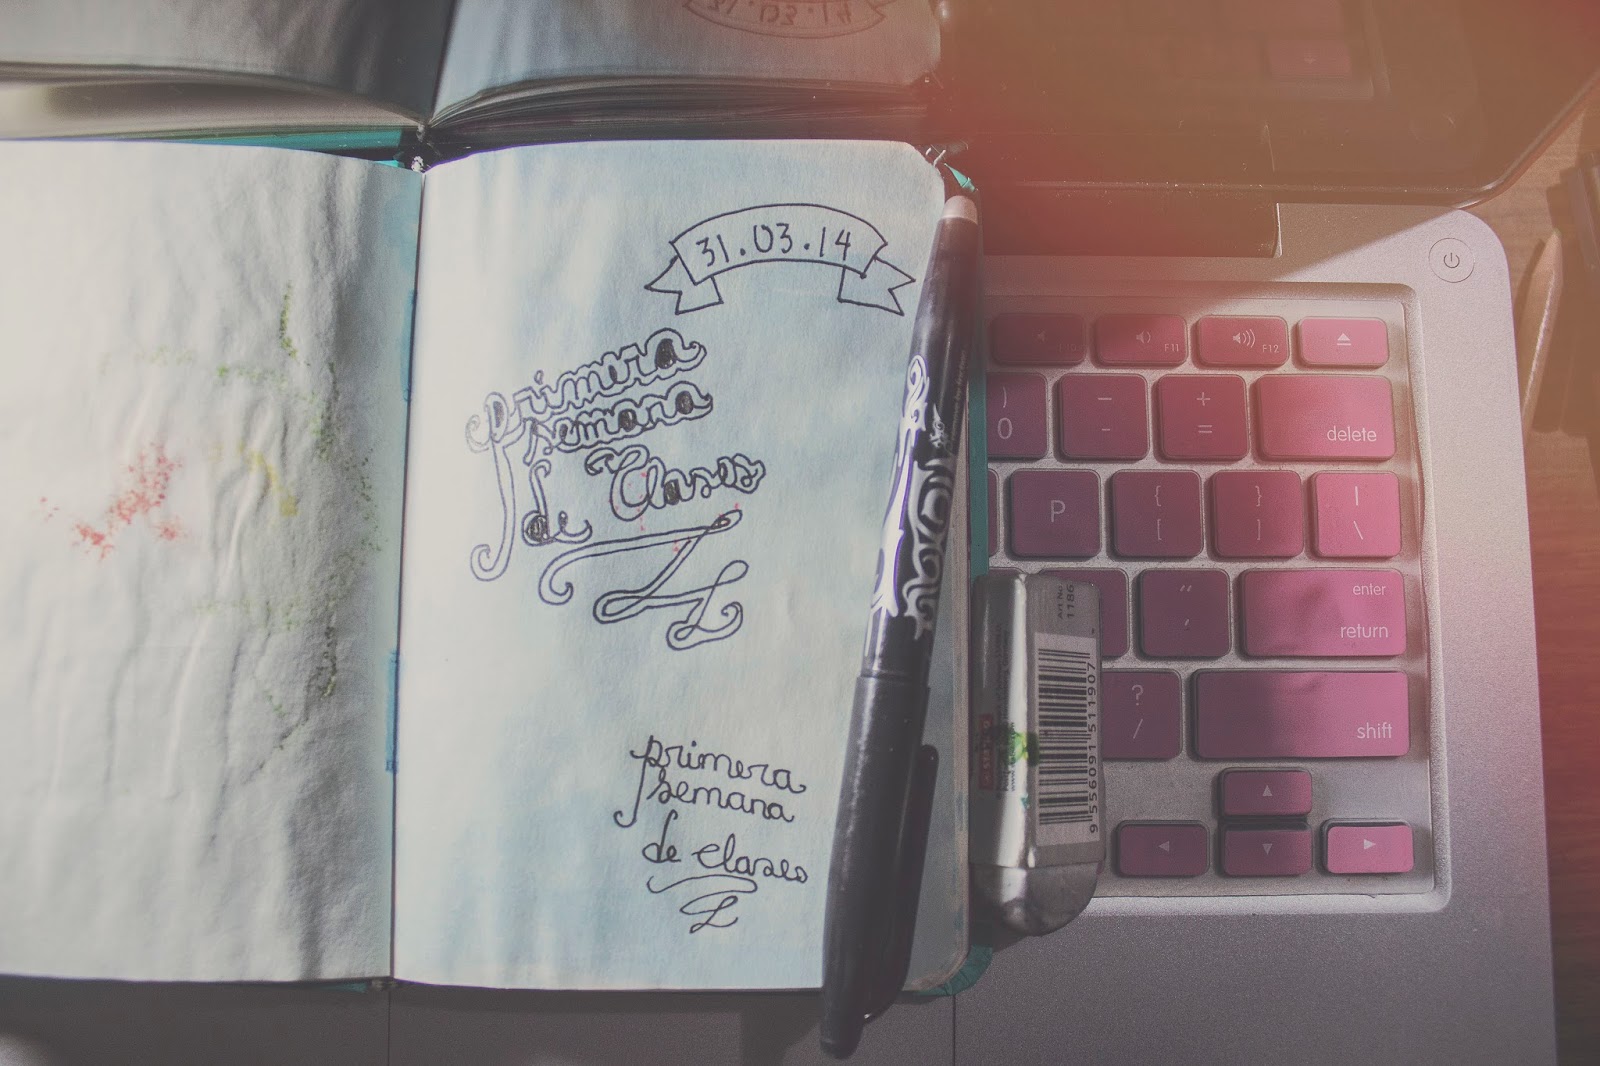 31.03.14
31.03.14
primera
semana
de Clases
primera
semana
de clases
F11
F12
)
0
–
-
+
=
delete
P
{
[
}
]
|
\
"
'
enter
return
?
/
shift
Art No
1186
9 556091 511907